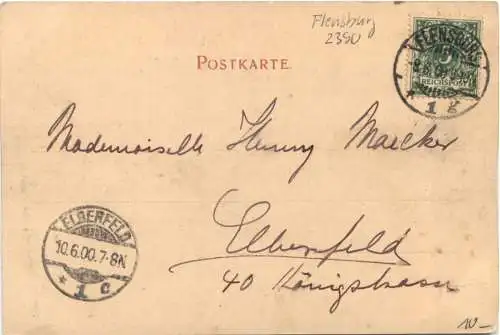 Flensburg
2390
POSTKARTE.
FLENSBURG
REICHSPOST
* 1 g
Mademoiselle Henny Maecker
Elberfeld
40 Königstrasse
ELBERFELD
10.6.00.7-8N.
* 1 c
10_